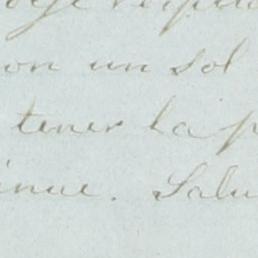 on un sol
tener la p
inue. Salu